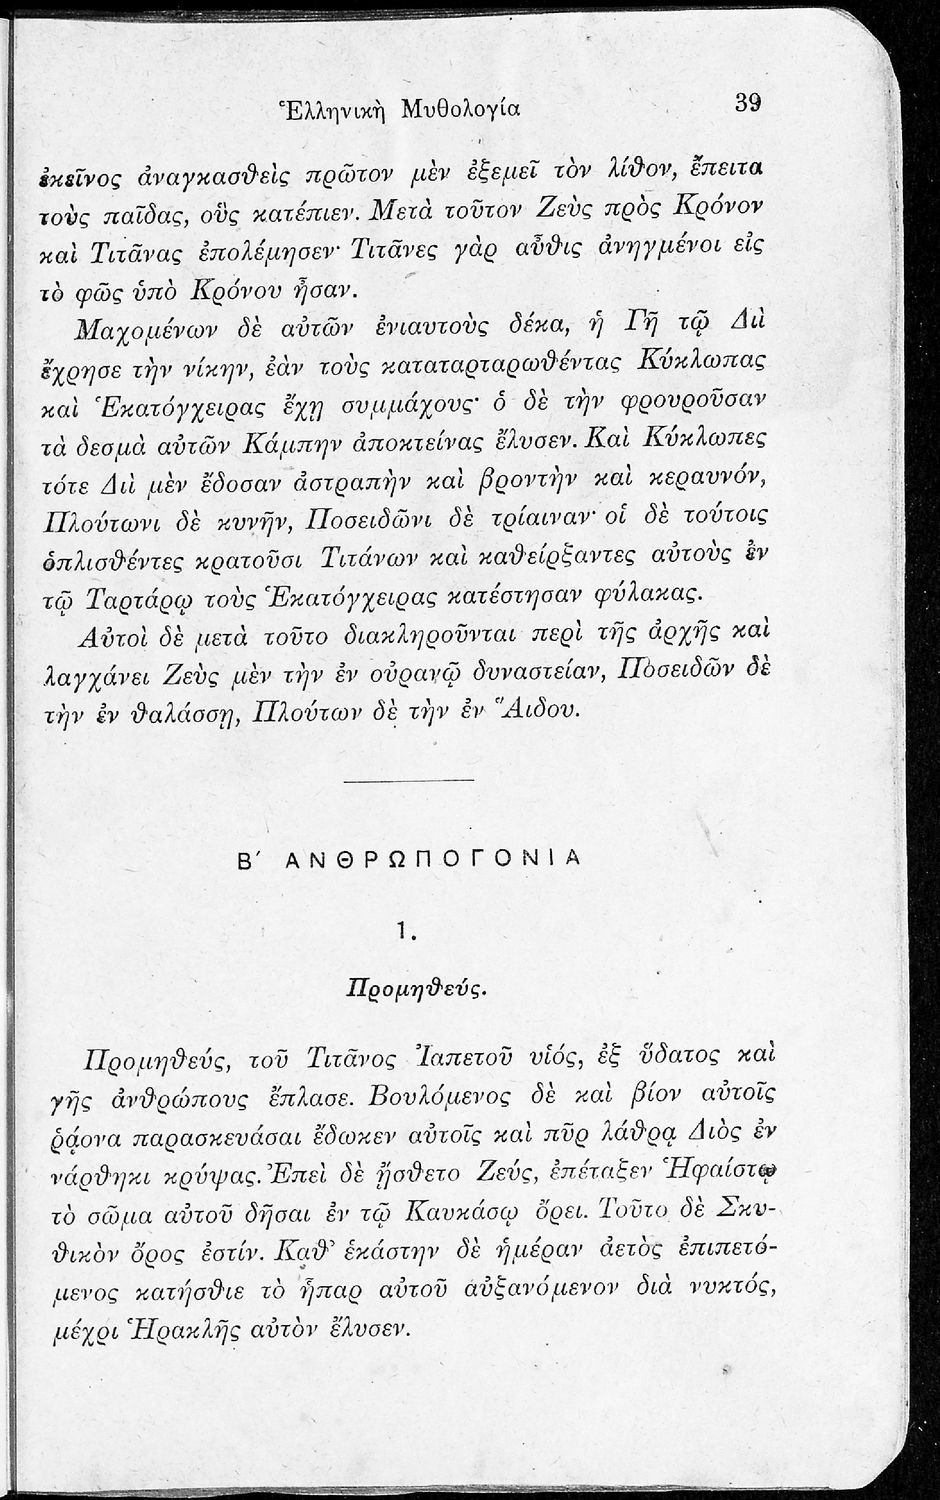 Ἑλληνικὴ Μυθολογία 39
ἐκεῖνος ἀναγκασθεὶς πρῶτον μὲν ἐξεμεῖ τὸν λίθον, ἔπειτα
τοὺς παῖδας, οὓς κατέπιεν. Μετὰ τοῦτον Ζεὺς πρὸς Κρόνον
καὶ Τιτᾶνας ἐπολέμησεν· Τιτᾶνες γὰρ αὖθις ἀνηγμένοι εἰς
τὸ φῶς ὑπὸ Κρόνου ἦσαν.
Μαχομένων δὲ αὐτῶν ἐνιαυτοὺς δέκα, ἡ Γῆ τῷ Διὶ
ἔχρησε τὴν νίκην, ἐὰν τοὺς καταταρταρωθέντας Κύκλωπας
καὶ Ἑκατόγχειρας ἔχῃ συμμάχους· ὁ δὲ τὴν φρουροῦσαν
τὰ δεσμὰ αὐτῶν Κάμπην ἀποκτείνας ἔλυσεν. Καὶ Κύκλωπες
τότε Διὶ μὲν ἔδοσαν ἀστραπὴν καὶ βροντὴν καὶ κεραυνόν,
Πλούτωνι δὲ κυνῆν, Ποσειδῶνι δὲ τρίαιναν· οἱ δὲ τούτοις
ὁπλισθέντες κρατοῦσι Τιτάνων καὶ καθείρξαντες αὐτοὺς ἐν
τῷ Ταρτάρῳ τοὺς Ἑκατόγχειρας κατέστησαν φύλακας.
Αὐτοὶ δὲ μετὰ τοῦτο διακληροῦνται περὶ τῆς ἀρχῆς καὶ
λαγχάνει Ζεὺς μὲν τὴν ἐν οὐρανῷ δυναστείαν, Ποσειδῶν δὲ
τὴν ἐν θαλάσσῃ, Πλούτων δὲ τὴν ἐν Ἅιδου.
Β΄ ΑΝΘΡΩΠΟΓΟΝΙΑ
1.
Προμηθεύς.
Προμηθεύς, τοῦ Τιτᾶνος Ἰαπετοῦ υἱός, ἐξ ὕδατος καὶ
γῆς ἀνθρώπους ἔπλασε. Βουλόμενος δὲ καὶ βίον αὐτοῖς
ῥᾴονα παρασκευάσαι ἔδωκεν αὐτοῖς καὶ πῦρ λάθρᾳ Διὸς ἐν
νάρθηκι κρύψας. Ἐπεὶ δὲ ᾔσθετο Ζεύς, ἐπέταξεν Ἡφαίστῳ
τὸ σῶμα αὐτοῦ δῆσαι ἐν τῷ Καυκάσῳ ὄρει. Τοῦτο δὲ Σκυ-
θικὸν ὄρος ἐστίν. Καθ’ ἑκάστην δὲ ἡμέραν ἀετὸς ἐπιπετό-
μενος κατήσθιε τὸ ἧπαρ αὐτοῦ αὐξανόμενον διὰ νυκτός,
μέχρι Ἡρακλῆς αὐτὸν ἔλυσεν.